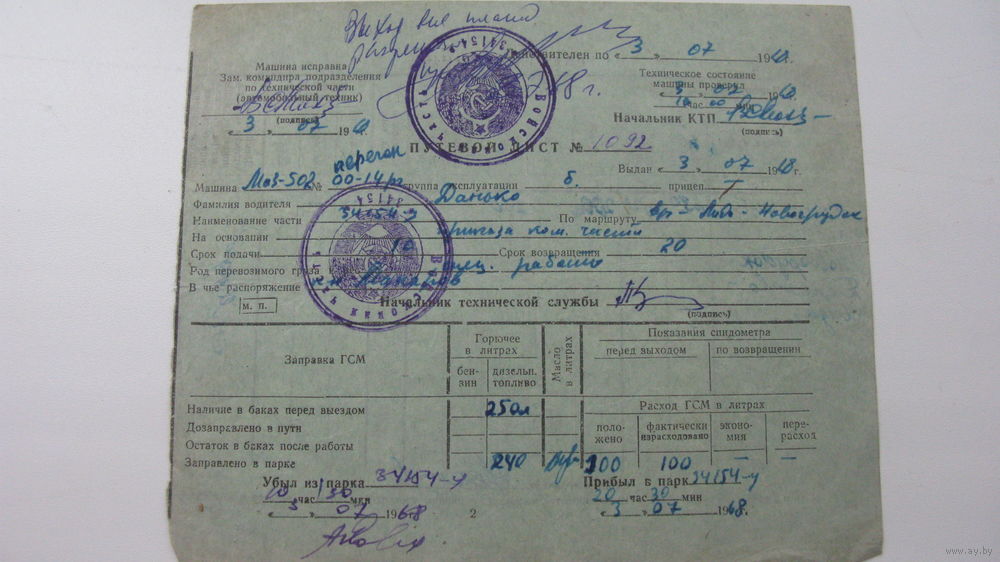 Выход вне плана
разрешаю
Действителен по «3» 07 1968
Машина исправна
Зам. командира подразделения
по технической части
(автомобильный техник)
(подпись)
«3» 07 196
Техническое состояние
машины проверил
3 07 196
10 час 00 мин
Начальник КТП
(подпись)
Войсковая часть 34154
ПУТЕВОЙ ЛИСТ № 1092
Выдан «3» 07 1968 г.
перегон
Машина Маз-502 № 00-14 рг группа эксплуатации б. прицеп
Фамилия водителя Данько
Наименование части 34154-у По маршруту - Новогрудок
На основании приказа ком. части
Срок подачи 10 Срок возвращения 20
Род перевозимого груза спец. работы
В чье распоряжение
м. п.
Начальник технической службы
(подпись)
Войсковая часть 34154
Заправка ГСМ
Горючее в литрах
бензин
дизельн. топливо
Масло в литрах
Показания спидометра
перед выходом
по возвращении
Наличие в баках перед выездом 250л
Дозаправлено в пути
Остаток в баках после работы
Заправлено в парке 240
Расход ГСМ в литрах
положено
фактически израсходовано
экономия
перерасход
100 100 — —
Убыл из парка 34154-у
10 час 30 мин
«3» 07 1968
Прибыл в парк 34154-у
20 час 30 мин
«3» 07 1968г.
2
www.ay.by